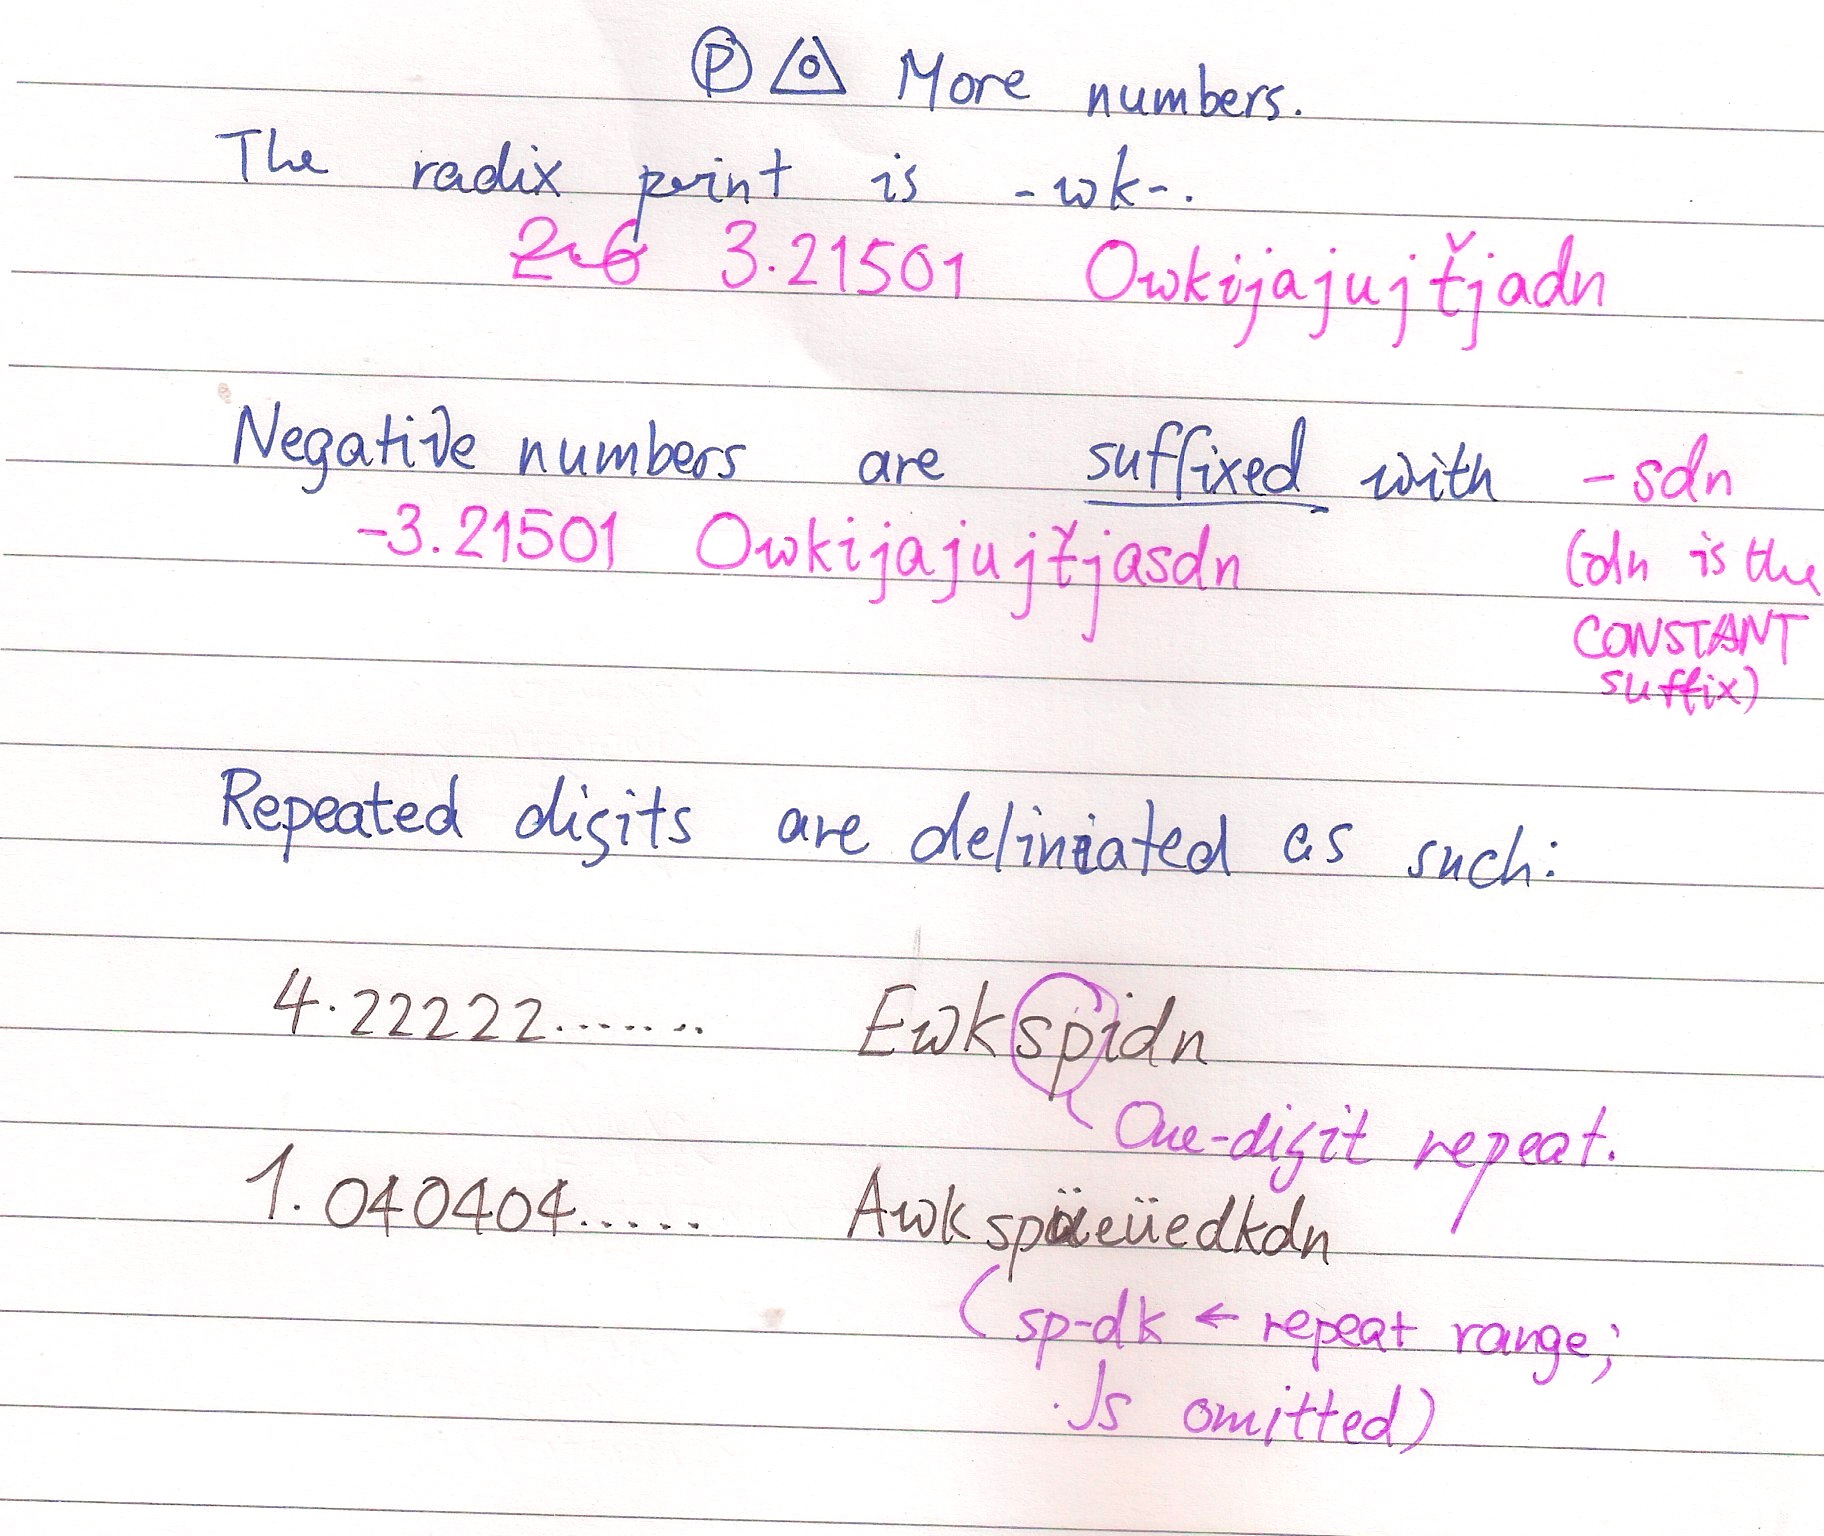 Ⓟ More numbers.
The radix point is -wk-.
2.6 3.21501 Owkijajujťjadn
Negative numbers are suffixed with -sdn
-3.21501 Owkijajujťjasdn (dn is the
CONSTANT
suffix)
Repeated digits are deliniated as such:
4.22222....... Ewkspidn
One-digit repeat.
1.040404..... Awkspüeüedkdn
(sp-dk ← repeat range;
Js omitted)